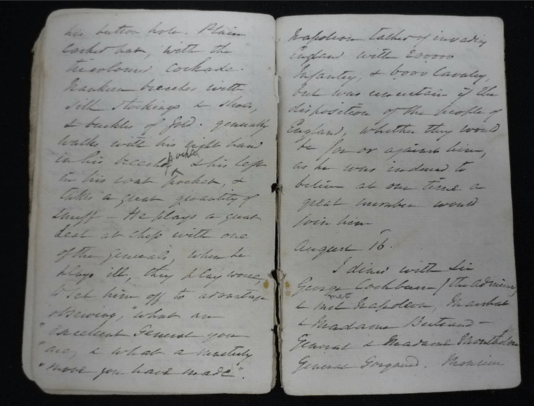 his button hole. Plain
cocked hat, with the
tricoloured Cockade.
Nankeen breeches with
silk stockings & shoes,
& buckles of gold. generally
walks with his right hand
in his breeches pocket & his left
in his coat pocket, &
takes a great quantity of
snuff - He plays a great
deal at chess with one
of the generals, when he
plays ill, they play worse
to set him off to advantage
observing, what an
"excellent General you
"are, & what a masterly
"move you have made".
Napoleon talked of invading
England with
Infantry, & 6000 Cavalry,
but was uncertain of the
disposition of the people of
England, whether they would
be for or against him,
as he was inclined to
believe at one time a
great number would
join him
August 16.
I dined with Sir
George Cockburn / the Admiral
& met Napoleon Marshal
& Madame Bertrand -
General & Madame Montholon
General Gorgaud.